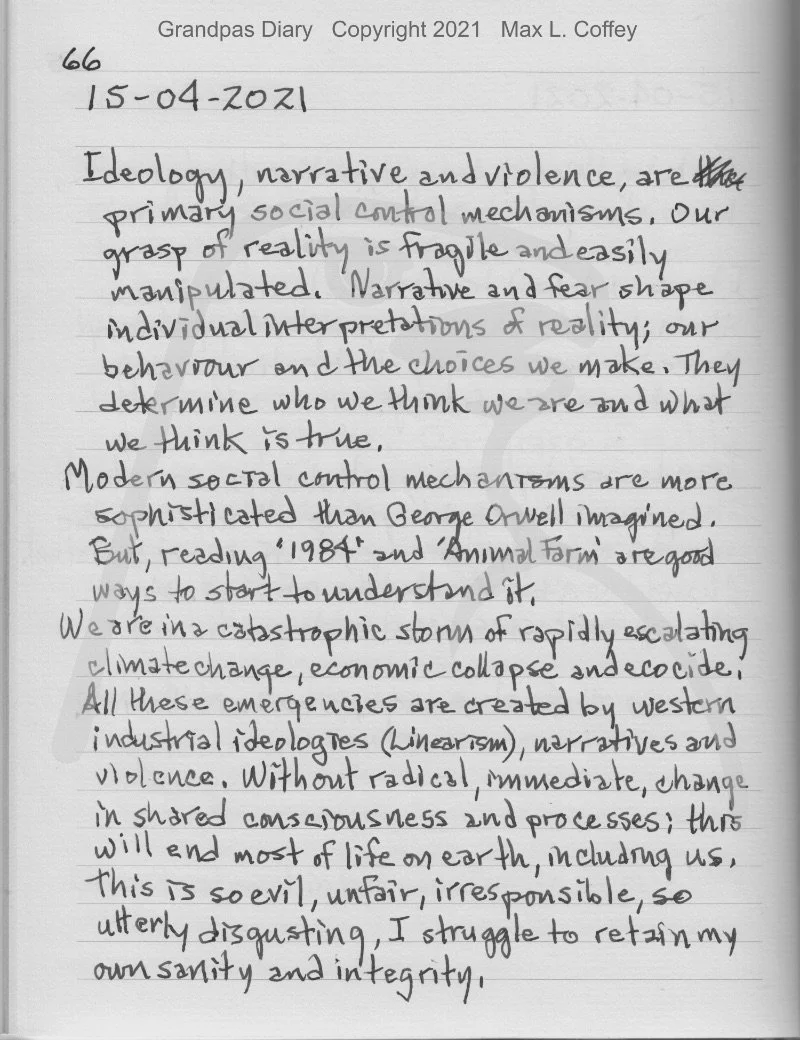 Grandpas Diary Copyright 2021 Max L. Coffey
66
15-04-2021
Ideology, narrative and violence, are
primary social control mechanisms. Our
grasp of reality is fragile and easily
manipulated. Narrative and fear shape
individual interpretations of reality; our
behaviour and the choices we make. They
determine who we think we are and what
we think is true.
Modern social control mechanisms are more
sophisticated than George Orwell imagined.
But, reading '1984' and 'Animal Farm' are good
ways to start to understand it.
We are in a catastrophic storm of rapidly escalating
climate change, economic collapse and ecocide.
All these emergencies are created by western
industrial ideologies (Linearism), narratives and
violence. Without radical, immediate, change
in shared consciousness and processes; this
will end most of life on earth, including us.
This is so evil, unfair, irresponsible, so
utterly disgusting, I struggle to retain my
own sanity and integrity.